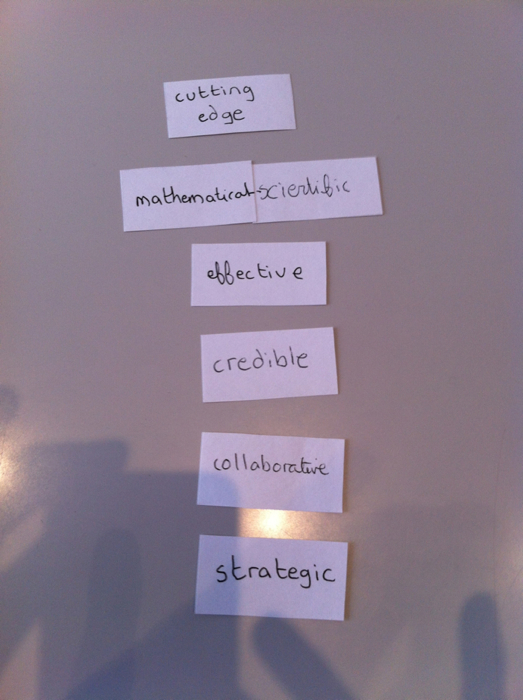 cutting
edge
mathematical scientific
effective
credible
collaborative
strategic